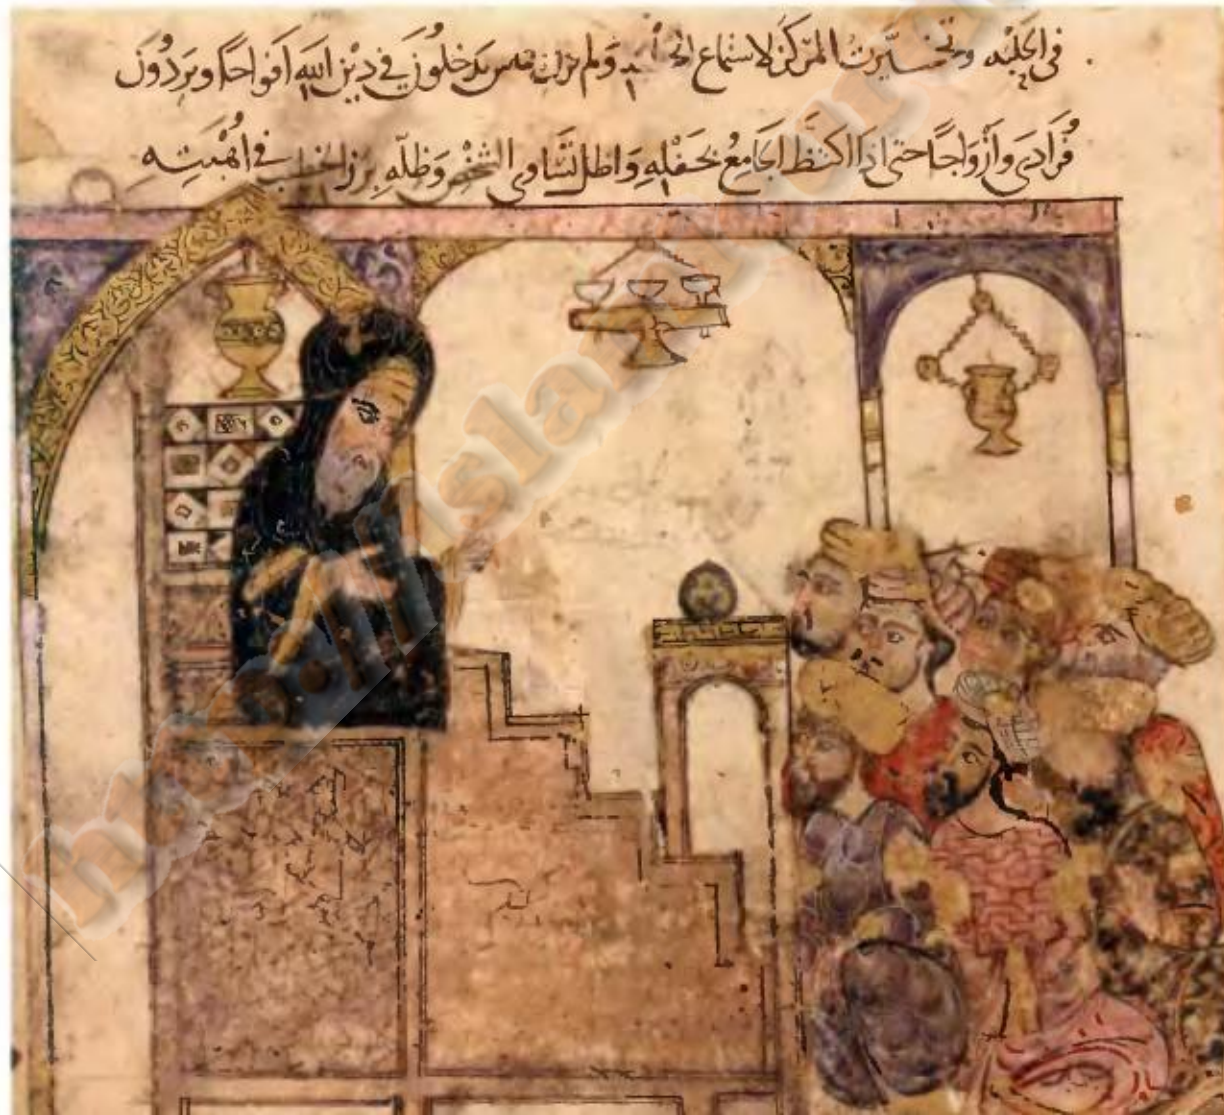 في الحلبه وتخيرت المركز لاستماع ولم يدخلون في دين الله افواجا ويردون
فرادى وأزواجا حتى اذا اكتظ الجامع بحفله واظل تساوي الشخص وظله برز الخطيب في أهبته